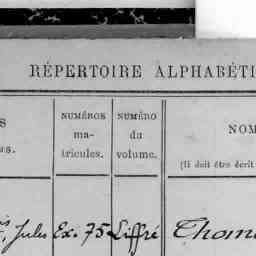 RÉPERTOIRE ALPHABÉTI
S
NUMÉROS
ma-
tricules.
NUMÉRO
du
volume.
NOM
(Il doit être écrit
s, Jules Ex. 75 Liffré Thom